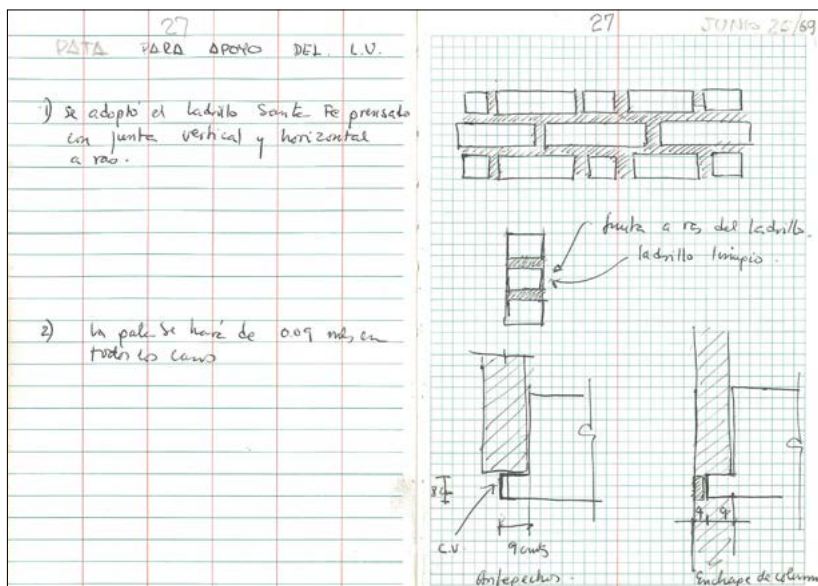 27
PATA PARA APOYO DEL L.V.
1) se adoptó el ladrillo Santa Fe prensado
con junta vertical y horizontal
a ras.
2) La pata se hará de 0.09 mts en
todos los casos
27
JUNIO 25/69
junta a ras del ladrillo.
ladrillo limpio.
8 cm
C.V.
9 cmts
Antepechos.
9
9
Enchape de column